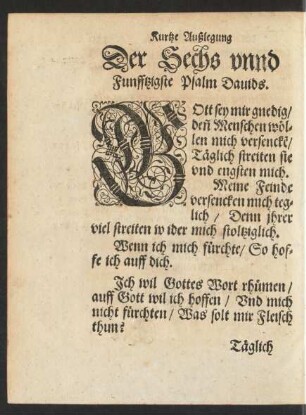 Kurtze Außlegung
Der Sechs vnnd
Funfftzigste Psalm Dauids.
GOtt sey mir gnedig/
deñ Menschen wöl-
len mich versenckē/
Täglich streiten sie
vnd engsten mich.
Meine Feinde
versencken mich teg-
lich / Denn jhrer
viel streiten wider mich stoltziglich.
Wenn ich mich fürchte/ So hof-
fe ich auff dich.
Ich wil Gottes Wort rhümen/
auff Gott wil ich hoffen / Vnd mich
nicht fürchten / Was solt mir Fleisch
thun?
Täglich